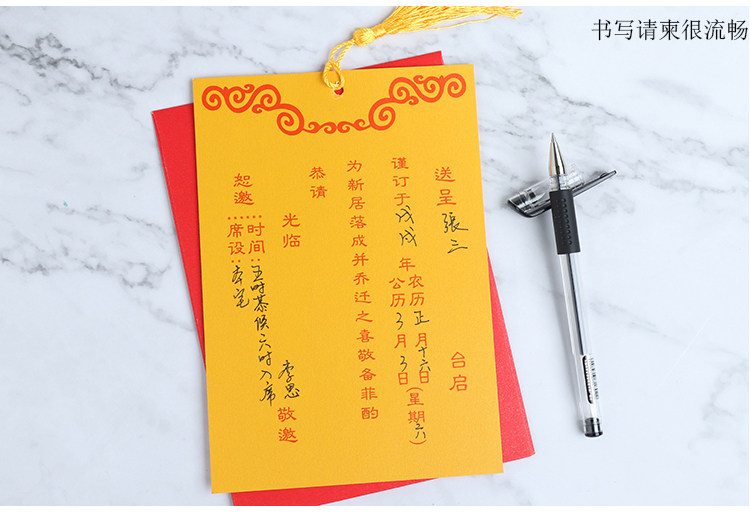 书写请柬很流畅
送呈 張三 台启
谨订于戊戌年 农历正月十六日 公历3月3日(星期六)
为新居落成并乔迁之喜敬备菲酌
恭请
光临
李思 敬邀
时间:五时恭候六时入席
席设:本宅
恕邀